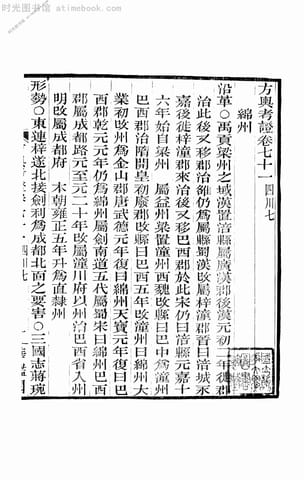 時光图书馆 www.atimebook.com
方輿考證卷七十一 四川七
綿州
沿革〇禹貢梁州之域漢置涪縣屬廣漢郡後漢元初二年後郡
治此後又移郡治雒仍爲屬縣蜀漢改屬梓潼郡晉曰涪城永
嘉後徙梓潼郡來治又移巴西郡於此宋仍曰涪縣元嘉十
六年始自梁州 屬益州梁置潼州西魏改縣曰巴中爲潼州
巴西郡治隋開皇初廢郡改縣曰巴西五年改潼州曰綿州大
業初改州爲金山郡唐武德元年復曰綿州天寶元年復曰巴
西郡乾元元年仍爲綿州屬劍南道五代屬蜀宋曰綿州巴西
郡屬成都路元至元二十年改屬潼川府以州治巴西省入州
明改屬成都府 本朝雍正五年升爲直隸州
形勢〇東連梓遂北接劍利爲成都北面之要害〇三國志蔣琬